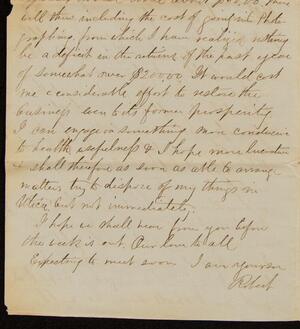 will thus including the cost of going in Photo-
graphing, from which I have realized nothing
be a deficit in the returns of the past year
of somewhat over $200.00 It would cost
me considerable effort to restore the
business even to its former prosperity
I can engage in something more conducive
to health, usefulness & I hope more lucrative
& shall therefore as soon as able to arrange
matters, try to dispose of my things in
Utica but not immediately.
I hope we shall hear from you before
the week is out. Our love to all
Expecting to meet soon I am your son
Robert